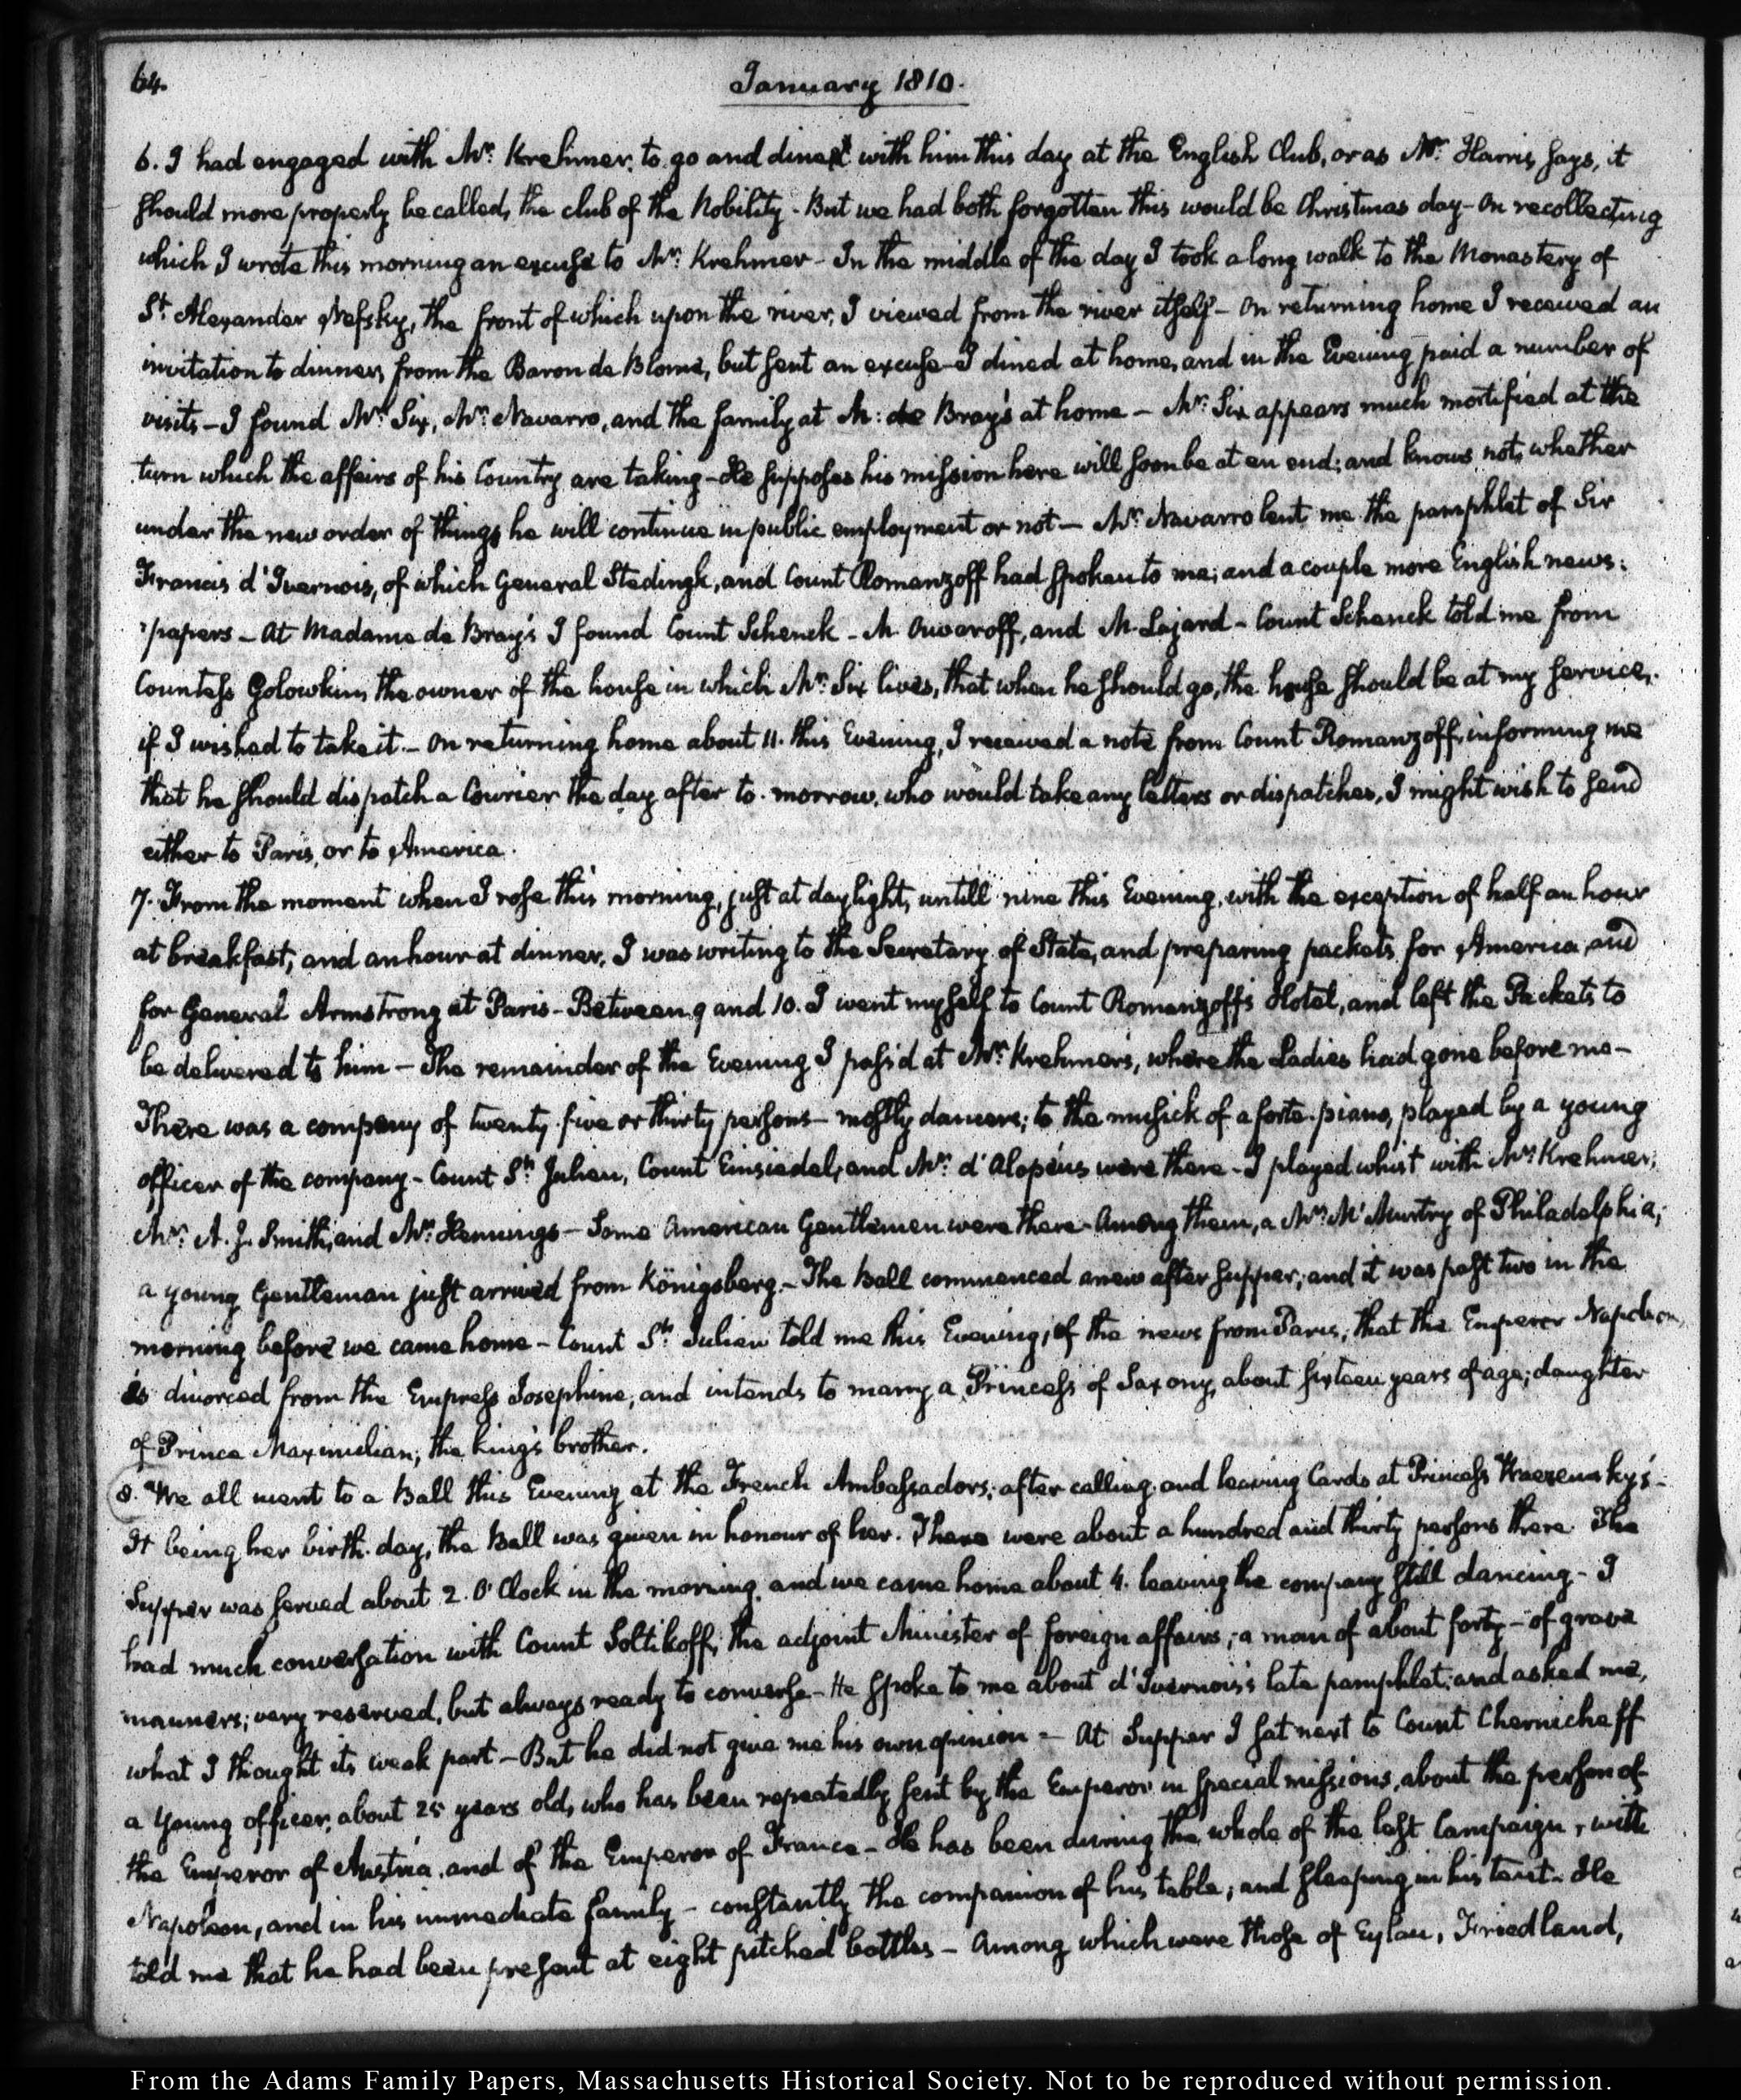 64.
January 1810.
6. I had engaged with Mr. Krehmer, to go and dine with him this day at the English Club, or as Mr. Harris says, it
should more properly be called, the club of the Nobility - But we had both forgotten this would be Christmas day - On recollecting
which I wrote this morning an excuse to Mr. Krehmer - In the middle of the day I took a long walk to the Monastery of
St. Alexander Nefsky, the front of which upon the river, I viewed from the river itself - On returning home I received an
invitation to dinner, from the Baron de Blome, but sent an excuse - I dined at home, and in the Evening paid a number of
visits - I found Mr. Six, Mr. Navarro, and the family at M: de Bray's at home - Mr. Six appears much mortified at the
turn which the affairs of his Country are taking - He supposes his mission here will soon be at an end; and knows not, whether
under the new order of things he will continue in public employment or not - Mr. Navarro lent me the pamphlet of Sir
Francis d'Ivernois, of which General Stedingk, and Count Romanzoff had spoken to me; and a couple more English news:
papers - At Madame de Bray's I found Count Schenck - M. Ouvaroff, and M. Lajard - Count Schenck told me from
Countess Golowkin, the owner of the house in which Mr. Six lives, that when he should go, the house should be at my service,
if I wished to take it. - On returning home about 11. this Evening, I received a note from Count Romanzoff, informing me
that he should dispatch a Courier the day after to-morrow, who would take any letters or dispatches, I might wish to send
either to Paris, or to America.
7. From the moment when I rose this morning, just at daylight, untill nine this Evening, with the exception of half an hour
at breakfast, and an hour at dinner, I was writing to the Secretary of State, and preparing packets for America, and
for General Armstrong at Paris - Between 9 and 10. I went myself to Count Romanzoff's Hotel, and left the Packets to
be delivered to him - The remainder of the Evening I pass'd at Mr. Krehmer's, where the Ladies had gone before me -
There was a company of twenty-five or thirty persons - mostly dancers; to the musick of a forte-piano, played by a young
officer of the company - Count St. Julien, Count Einsiedel, and Mr. d'Alopéus were there - I played whist with Mr. Krehmer,
Mr. A. J. Smith, and Mr. Hennings - Some American Gentlemen were there - Among them, a Mr. McMurtry of Philadelphia;
a young Gentleman just arrived from Königsberg. - The Ball commenced anew after supper; and it was past two in the
morning before we came home - Count St. Julien told me this Evening, of the news from Paris; that the Emperor Napoleon,
is divorced from the Empress Josephine, and intends to marry a Princess of Saxony, about sixteen years of age; daughter
of Prince Maximilian, the king's brother.
8. We all went to a Ball this Evening at the French Ambassadors; after calling and leaving Cards at Princess Wiazemsky's -
It being her birth-day, the Ball was given in honour of her. There were about a hundred and thirty persons there. The
Supper was served about 2. O'Clock in the morning, and we came home about 4. leaving the company still dancing - I
had much conversation with Count Soltikoff, the adjoint Minister of foreign affairs; a man of about forty - of grave
manners; very reserved, but always ready to converse - He spoke to me about d'Ivernois's late pamphlet; and asked me,
what I thought its weak part - But he did not give me his own opinion - At Supper I sat next to Count Chernicheff
a young officer, about 25 years old, who has been repeatedly sent by the Emperor in special missions, about the person of
the Emperor of Austria, and of the Emperor of France - He has been during the whole of the last Campaign, with
Napoleon, and in his immediate family - constantly the companion of his table; and sleeping in his tent - He
told me that he had been present at eight pitched battles - Among which were those of Eylau, Friedland,
From the Adams Family Papers, Massachusetts Historical Society. Not to be reproduced without permission.